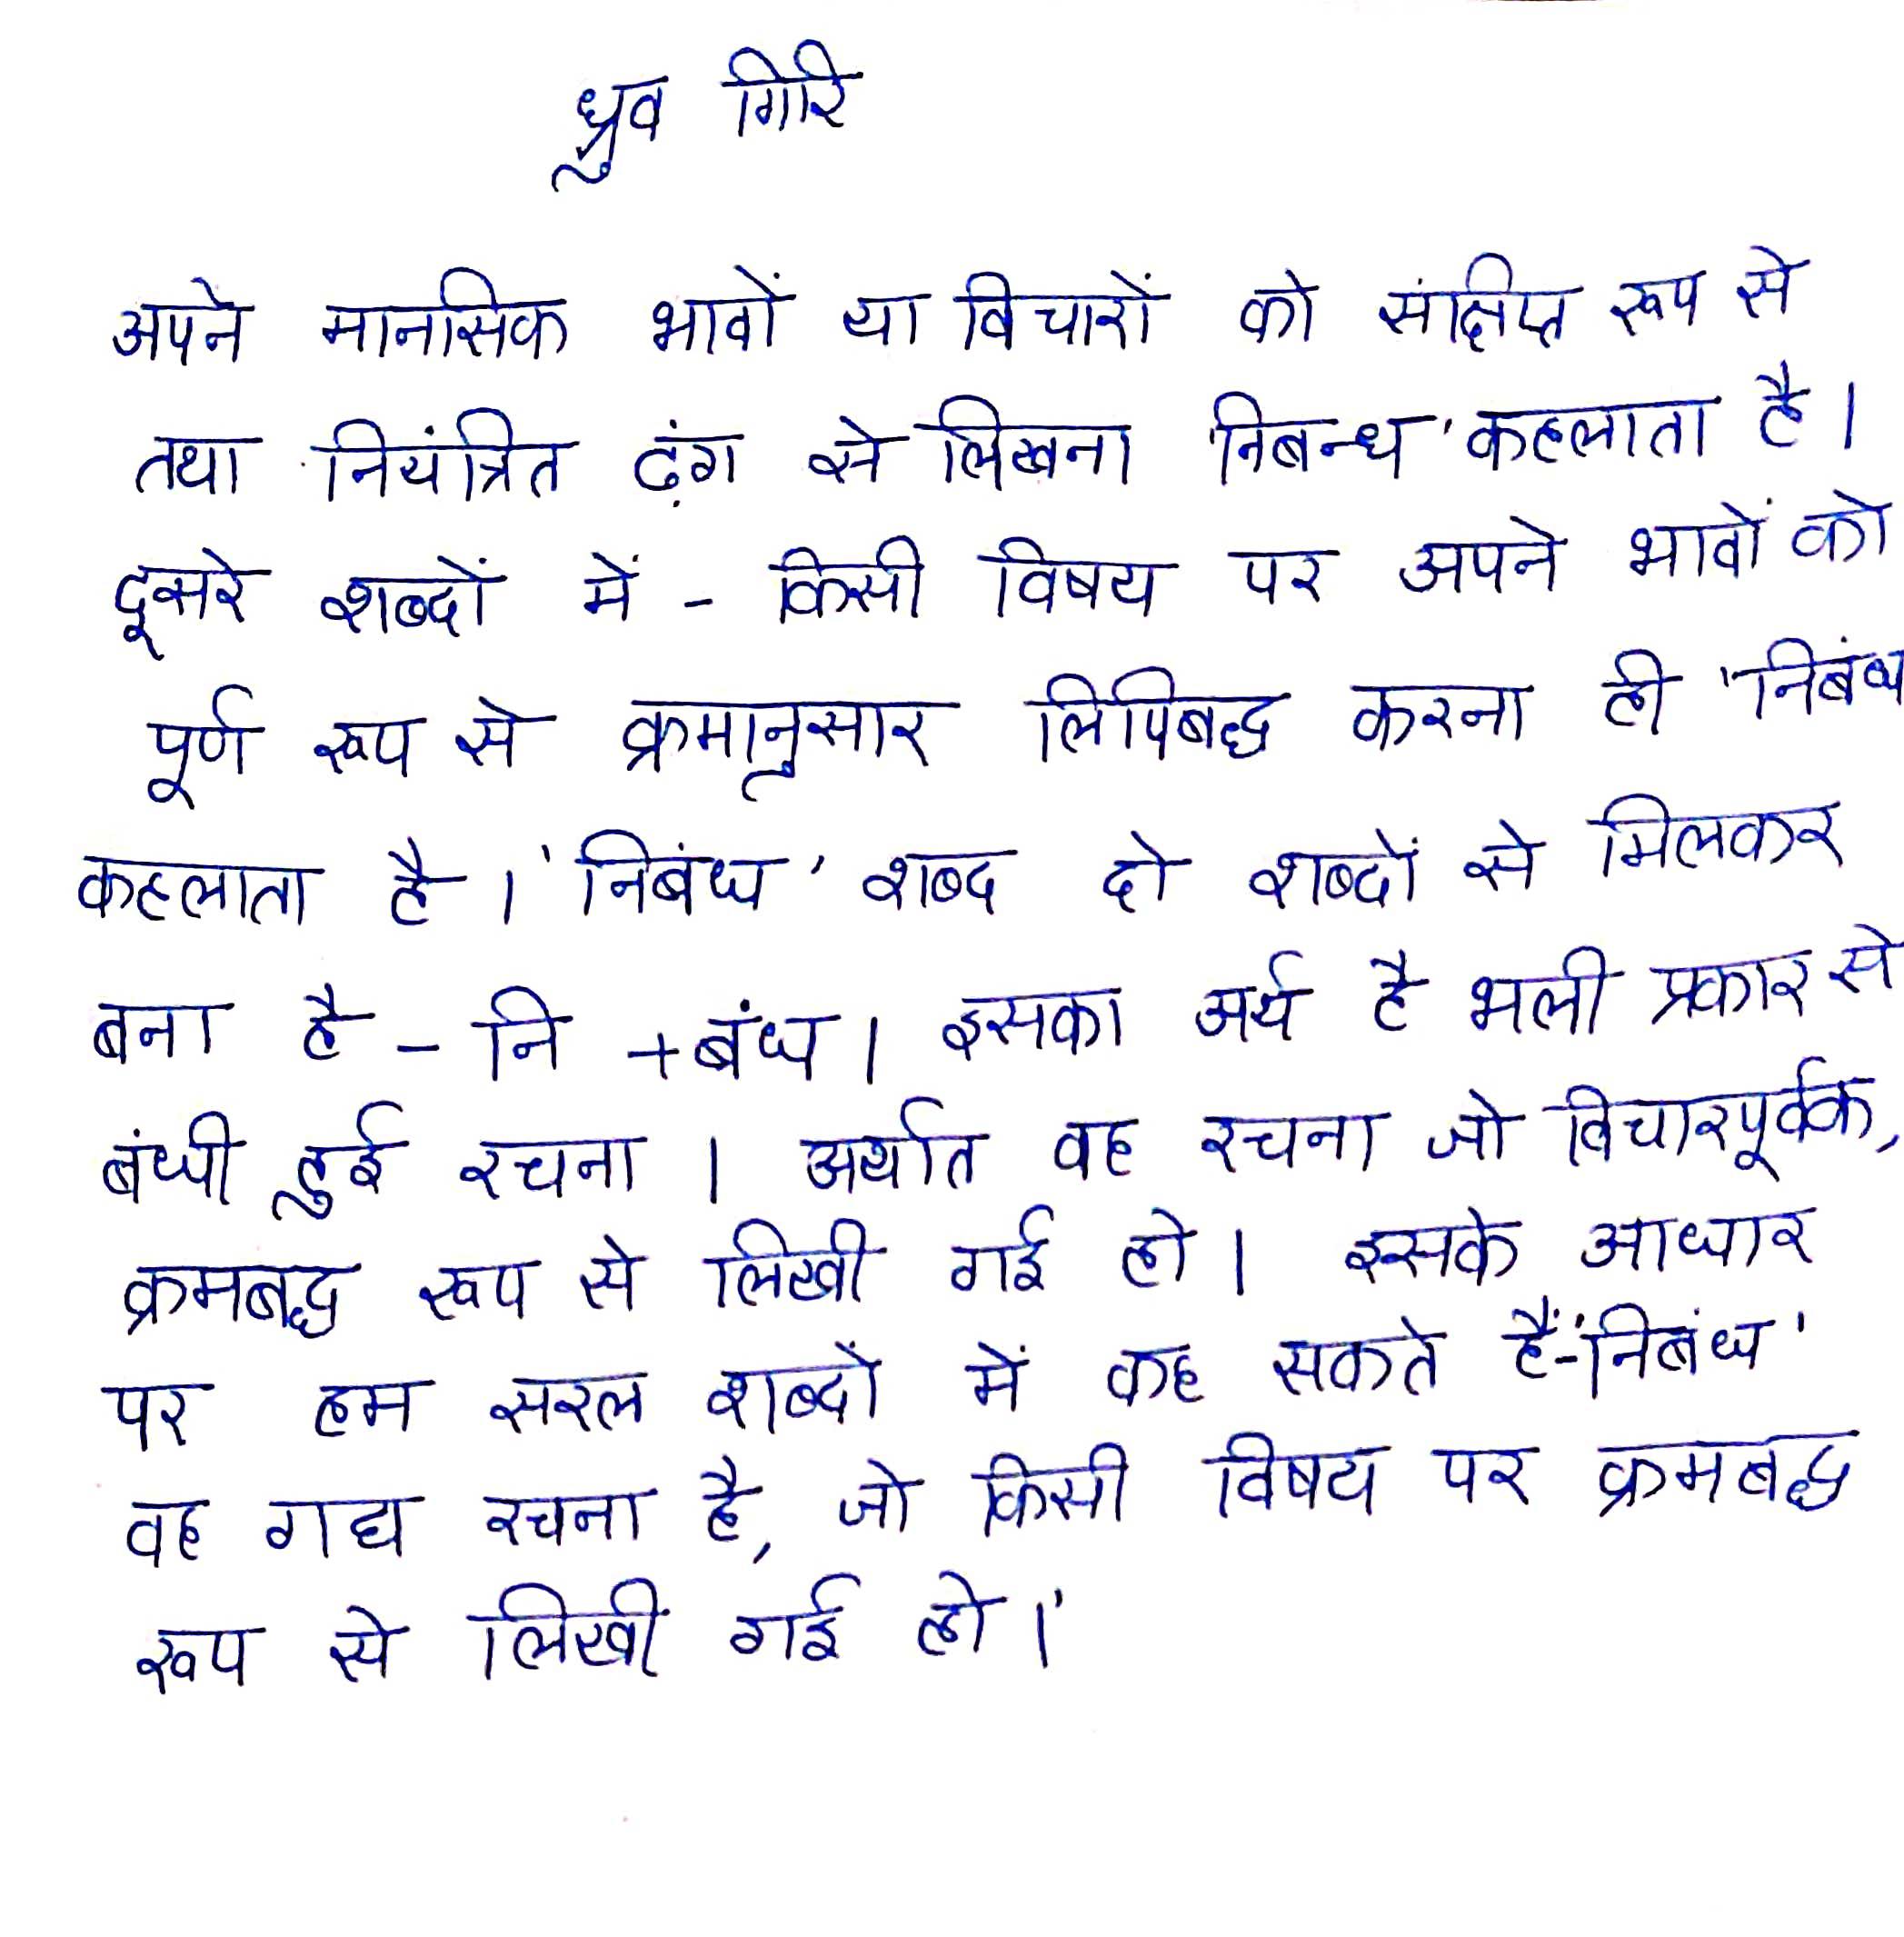 ध्रुव गिरि
अपने मानसिक भावों या विचारों को संक्षिप्त रूप से
तथा नियंत्रित ढ़ंग से लिखना 'निबन्ध' कहलाता है।
दूसरे शब्दों में - किसी विषय पर अपने भावों को
पूर्ण रूप से क्रमानुसार लिपिबद्ध करना ही 'निबंध
कहलाता है। 'निबंध' शब्द दो शब्दों से मिलकर
बना है - नि + बंध। इसका अर्थ है भली प्रकार से
बंधी हुई रचना। अर्थात वह रचना जो विचारपूर्वक,
क्रमबद्ध रूप से लिखी गई हो। इसके आधार
पर हम सरल शब्दों में कह सकते हैं-'निबंध'
वह गद्य रचना है, जो किसी विषय पर क्रमबद्ध
रूप से लिखी गई हो।'